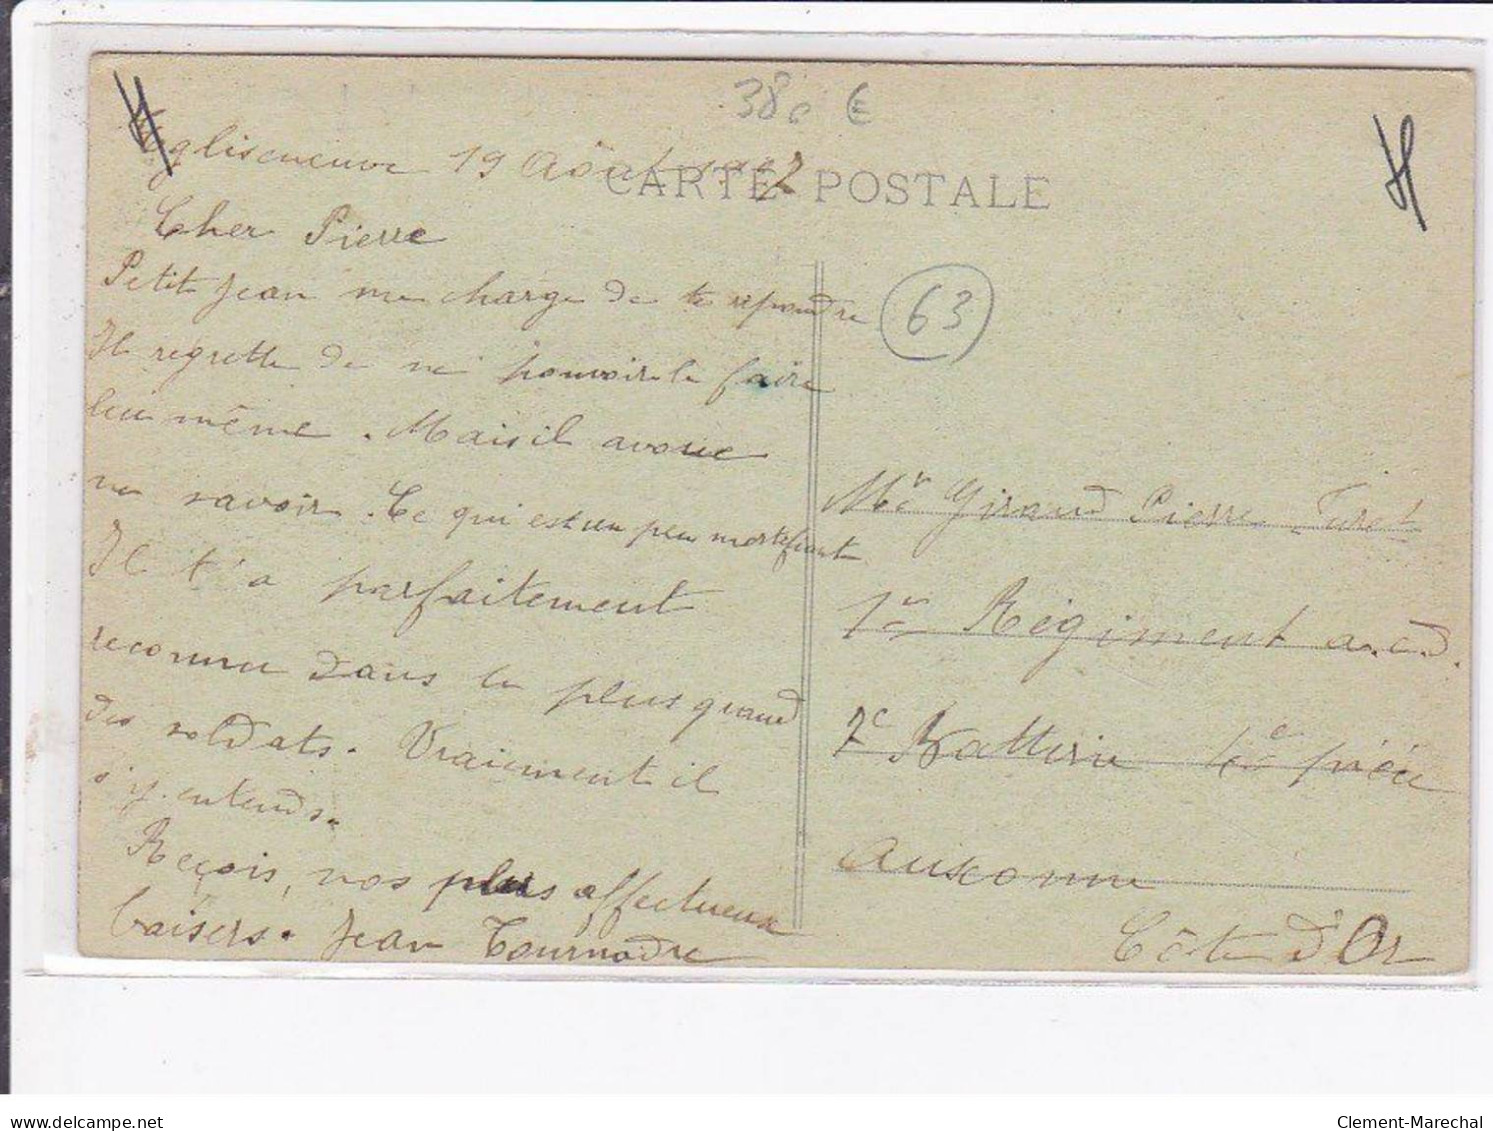 380 €
Egliseneuve 19 Août
CARTE POSTALE
Cher Pierre
Petit Jean me charge de te repondre
Il regrette de ne pouvoir le faire
lui même. Mais il avoue
ne savoir. Ce qui est un peu mortifiant
Il t'a parfaitement
reconnu dans le plus grand
des soldats. Vraiement il
s'y entends.
Reçois, nos plus affectueux
baisers. Jean Tournadre
63
Mr Giraud Pierre Turet
1er Régiment a.c.d.
2e Batterie 4e pièce
Auxonne
Côte d'Or
delcampe.net
Clement-Marechal